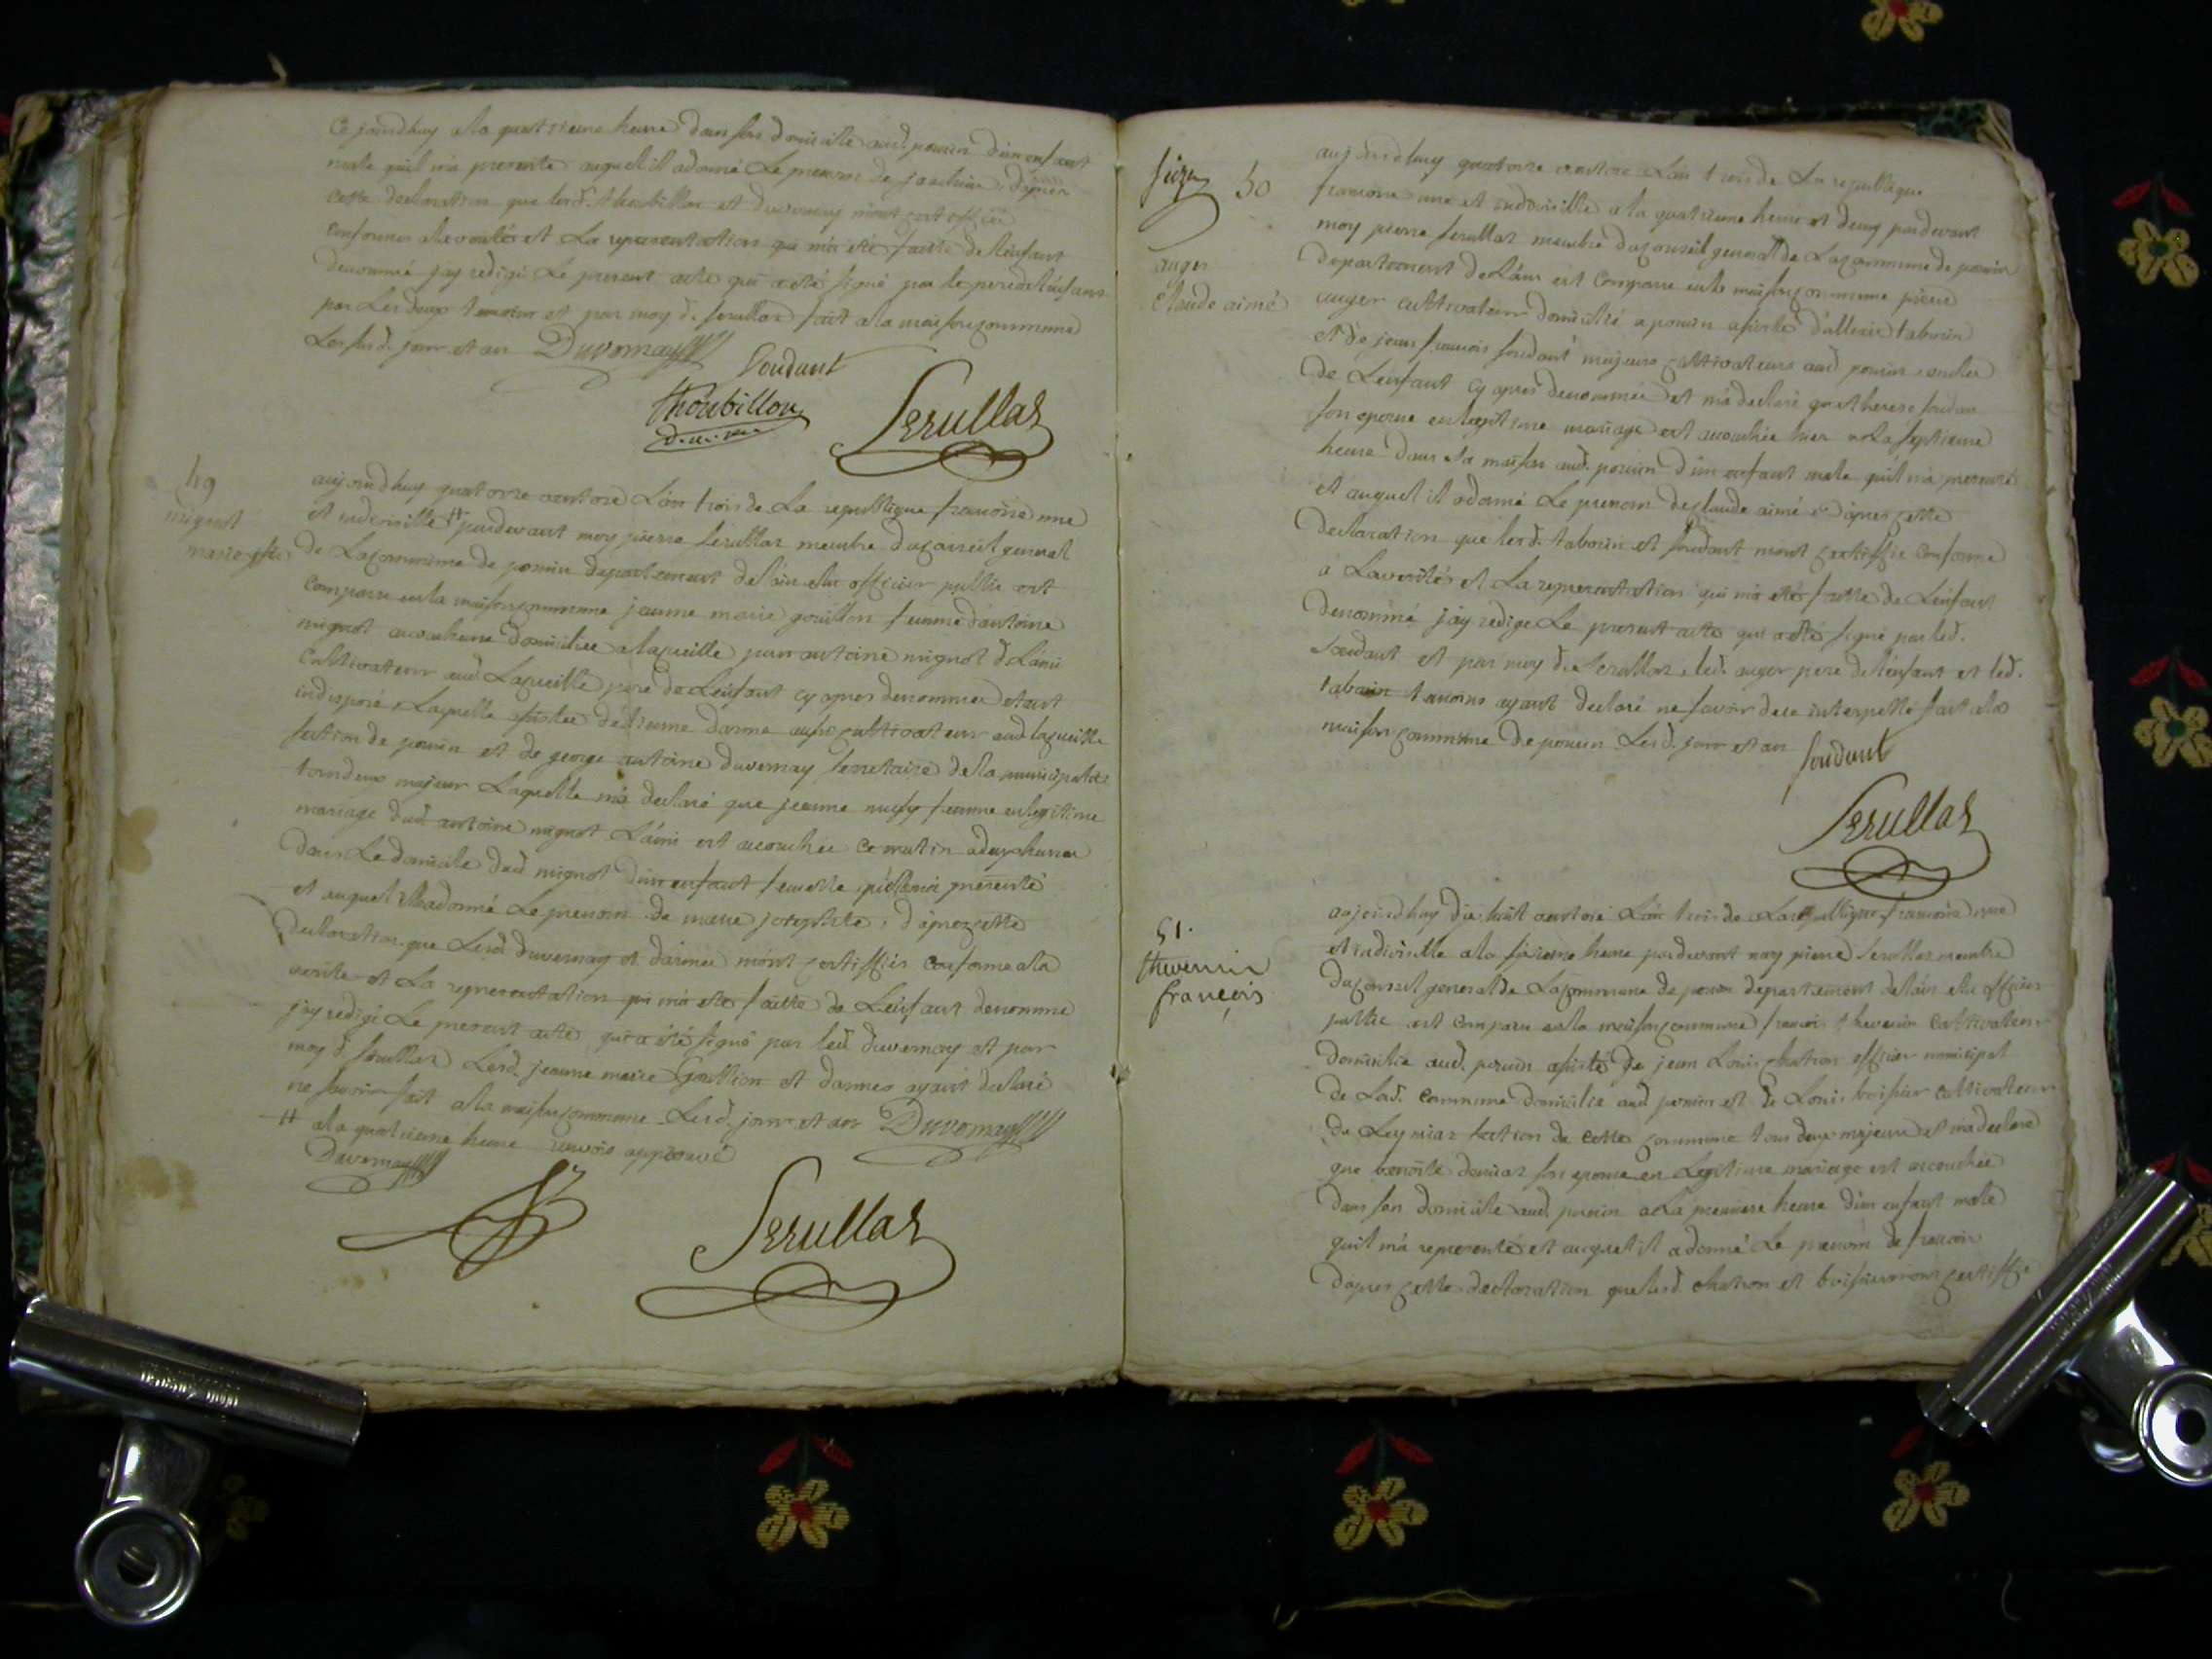 Ce jourdhuy ala quatrieme heure dans son domicille aud. poncin d'un enfant
male quil m'a presenté auquel il adonné Le prenom de joachim. d'apres
cette declaration que lesd. thoubillon et duvernay m'ont certiffiée
conforme alaverité et La representation qui m'a été faitte de Lenfant
denommé jay redigé Le present acte qui a été signé par le pere de lenfant
par Les deux temoins et par moy d. serullaz fait ala maison commune
Les susd. jour et an Duvernay
Goudant
thoubillon
Serullaz
49
mignot
marie jte
aujourdhuy quatorze ventose Lan trois de La republique francoise une
et indivisille # pardevant moy pierre serullaz membre du conseil general
de Lacommune de poncin departement de lain elu officier public est
comparu enla maison commune jeanne marie gouillon femme d'antoine
mignot acoucheuse domiciliée alacueille pour antoine mignot d. L'ainé
Cultivateur aud. Lacueille pere de Lenfant cy apres denommée etant
indisposé, Laquelle assistée d'etienne darme aussi cultivateur aud. lacueille
section de poncin et de george antoine duvernay secretaire de la municipalité
tous deux majeur Laquelle m'a declaré que jeanne femme en legitime
mariage dud. antoine mignot L'ainé est acouchée ce matin a deux heures
dans Le domicile dud. mignot d'un enfant femelle quelle m'a presenté
et auquel elle adonné Le prenom de marie josephte, d'apres cette
declaration que Lesd. duvernay et darmes m'ont certiffiés conforme ala
verité et La representation qui m'a eté faitte de Lenfant denommé
jay redigé Le present acte qui a été signé par led. duvernay et par
moy d. serullaz Lesd. jeanne marie gouillion et darmes ayant declaré
ne savoir fait ala maison commune Lesd. jour et an Duvernay
# ala quatrieme heure renvois approuvé
Duvernay
Sz
Serullaz
50
auger
Claude aimé
aujourdhuy quatorze ventose Lan trois de La republique
francoise une et indivisille a la quatrieme heure et demy pardevant
moy pierre serullaz membre du conseil general de Lacommune de poncin
departement de Lain est comparu enla maison commune pierre
auger cultivateur domicilié a poncin assisté d'allexis tabouin
et de jean francois goudant majeurs cultivateurs aud. poncin oncles
de Lenfant cy apres denommé et m'a declaré que therese goudan
son epouse en legitime mariage est acouchée hier ala septieme
heure dans sa maison aud. poncin d'un enfant male quil m'a presenté
et auquel il adonné Le prenom de claude aimé. d'apres cette
declaration que lesd. tabouin et goudant mont certiffié conforme
a Laverité et La representation qui m'a eté faitte de Lenfant
denommé j'ay redigé Le present acte qui a été signé par led.
goudant et par moy d. Serullaz, led. auger pere de lenfant et led.
tabouin temoins ayant declaré ne savoir de ce interpellé fait ala
maison commune de poncin Lesd. jour et an
goudant
Serullaz
51.
thevenin
françois
aujourdhuy dix huit ventose Lan trois de La republique francoise une
et indivisille ala sixieme heure pardevant moy pierre Serullaz membre
du conseil general de Lacommune de poncin departement de lain elu officier
public est comparu enla maison commune francois thevenin Cultivateur
domicilié aud. poncin assisté de jean Louis chatron officier municipal
de Lad. commune domicilié aud. poncin et de Louis boissier cultivateur
de Leymiaz section de cette commune tous deux majeurs et m'a declaré
que benoite deniaz son epouse en Legitime mariage est acouchée
dans son domicile aud. poncin ala premiere heure d'un enfant male
quil m'a representé et auquel il adonné Le prenom de francois
d'apres cette declaration que lesd. chatron et boissier mont certiffié